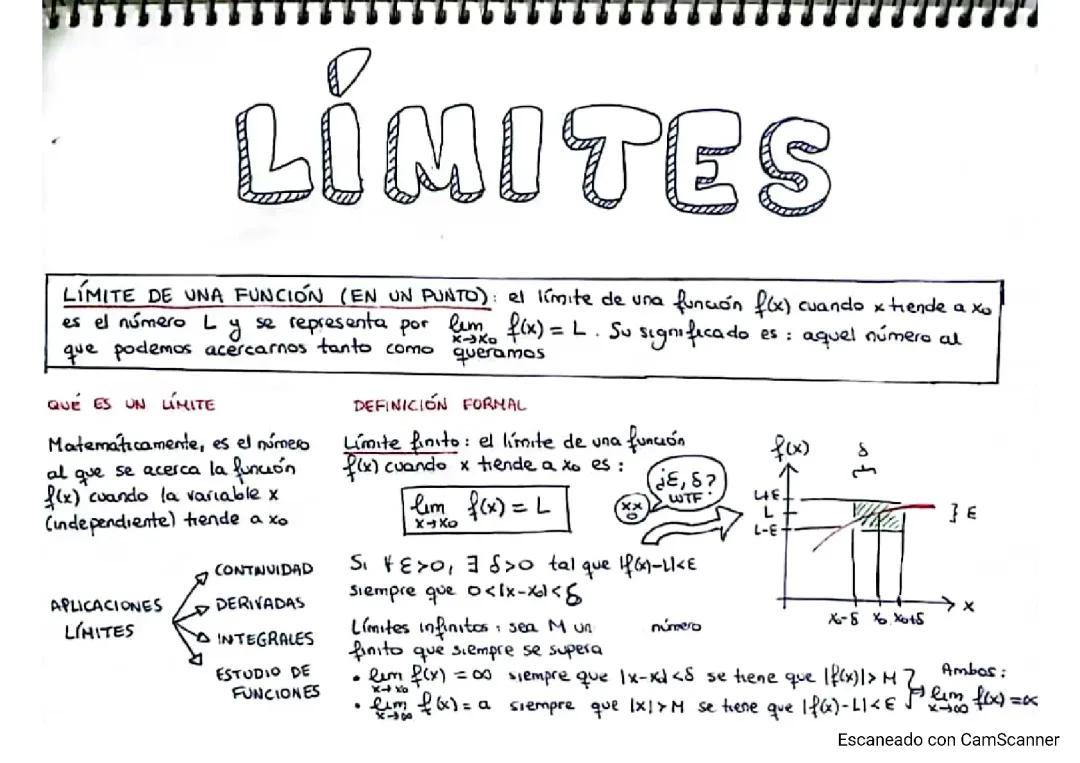 LÍMITES
LÍMITE DE UNA FUNCIÓN (EN UN PUNTO): el límite de una función f(x) cuando x tiende a x₀
es el número L y se representa por lim x→x₀ f(x) = L. Su significado es: aquel número al
que podemos acercarnos tanto como queramos
QUÉ ES UN LÍMITE
Matemáticamente, es el número
al que se acerca la función
f(x) cuando la variable x
(independiente) tiende a x₀
APLICACIONES
LÍMITES
CONTINUIDAD
DERIVADAS
INTEGRALES
ESTUDIO DE
FUNCIONES
DEFINICIÓN FORMAL
Límite finito: el límite de una función
f(x) cuando x tiende a x₀ es:
lim x→x₀ f(x) = L
¿ε, δ?
WTF!
Si ∀ ε>0, ∃ δ>0 tal que |f(x)-L|<ε
siempre que 0<|x-x₀|<δ
f(x)
δ
L+ε
L
L-ε
} ε
x
x₀-δ x₀ x₀+δ
Límites infinitos: sea M un número
finito que siempre se supera
• lim x→x₀ f(x) = ∞ siempre que |x-x₀|<δ se tiene que |f(x)|> M
• lim x→∞ f(x) = a siempre que |x|>M se tiene que |f(x)-L|<ε
Ambos:
lim x→∞ f(x) = ∝
Escaneado con CamScanner